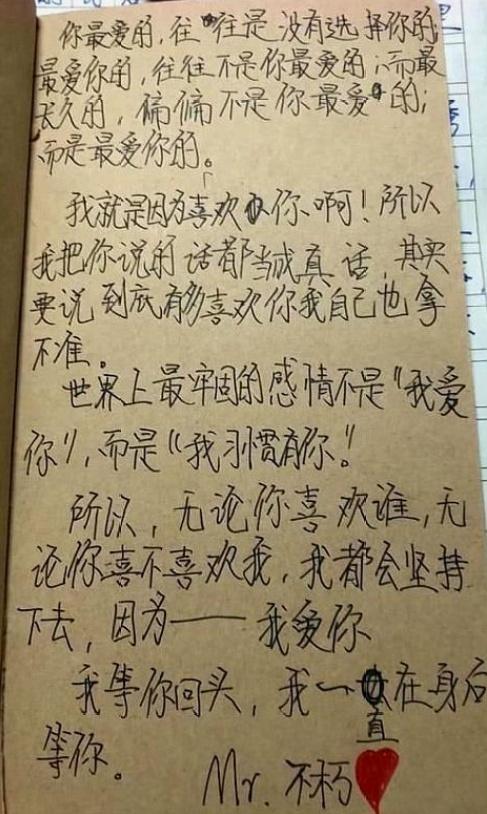 你最爱的,往往是没有选择你的
最爱你的,往往不是你最爱的;而最
长久的,偏偏不是你最爱的;
而是最爱你的。
我就是因为喜欢你啊!所以
我把你说的话都当成真话,其实
要说到底有多喜欢你我自己也拿
不准。
世界上最牢固的感情不是“我爱
你”,而是“我习惯有你。”
所以,无论你喜欢谁,无
论你喜不喜欢我,我都会坚持
下去,因为——我爱你
我等你回头,我一直在身后
等你。
Mr.不朽